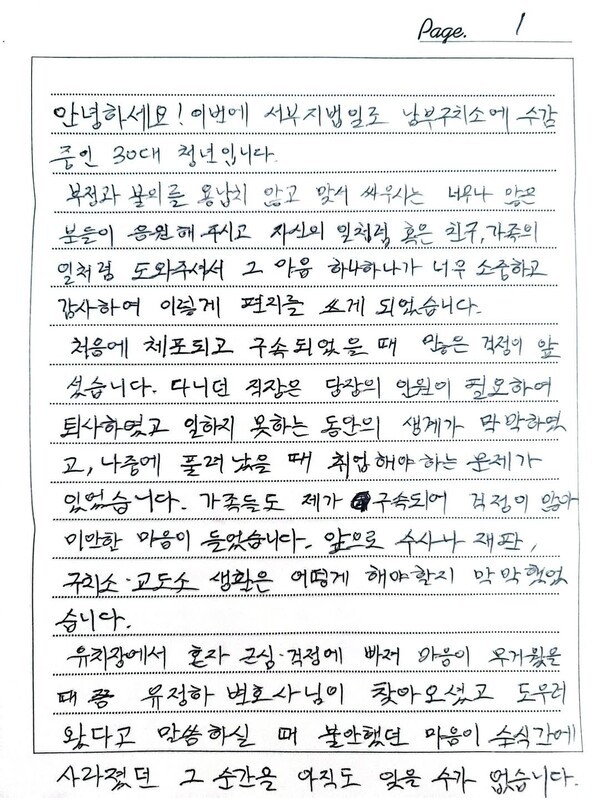 Page. 1
안녕하세요! 이번에 서부지법일로 남부구치소에 수감
중인 30대 청년입니다.
부정과 불의를 용납치 않고 맞서 싸우시는 너무나 많은
분들이 응원해 주시고 자신의 일처럼, 혹은 친구, 가족의
일처럼 도와주셔서 그 마음 하나하나가 너무 소중하고
감사하여 이렇게 편지를 쓰게 되었습니다.
처음에 체포되고 구속되었을 때 많은 걱정이 앞
섰습니다. 다니던 직장은 당장의 인원이 필요하여
퇴사하였고 일하지 못하는 동안의 생계가 막막하였
고, 나중에 풀려 났을 때 취업해야 하는 문제가
있었습니다. 가족들도 제가 구속되어 걱정이 많아
미안한 마음이 들었습니다. 앞으로 수사나 재판,
구치소·교도소 생활은 어떻게 해야할지 막막했었
습니다.
유치장에서 혼자 근심·걱정에 빠져 마음이 무거웠을
때쯤 유정하 변호사님이 찾아오셨고 도우러
왔다고 말씀하실 때 불안했던 마음이 순식간에
사라졌던 그 순간을 아직도 잊을 수가 없습니다.